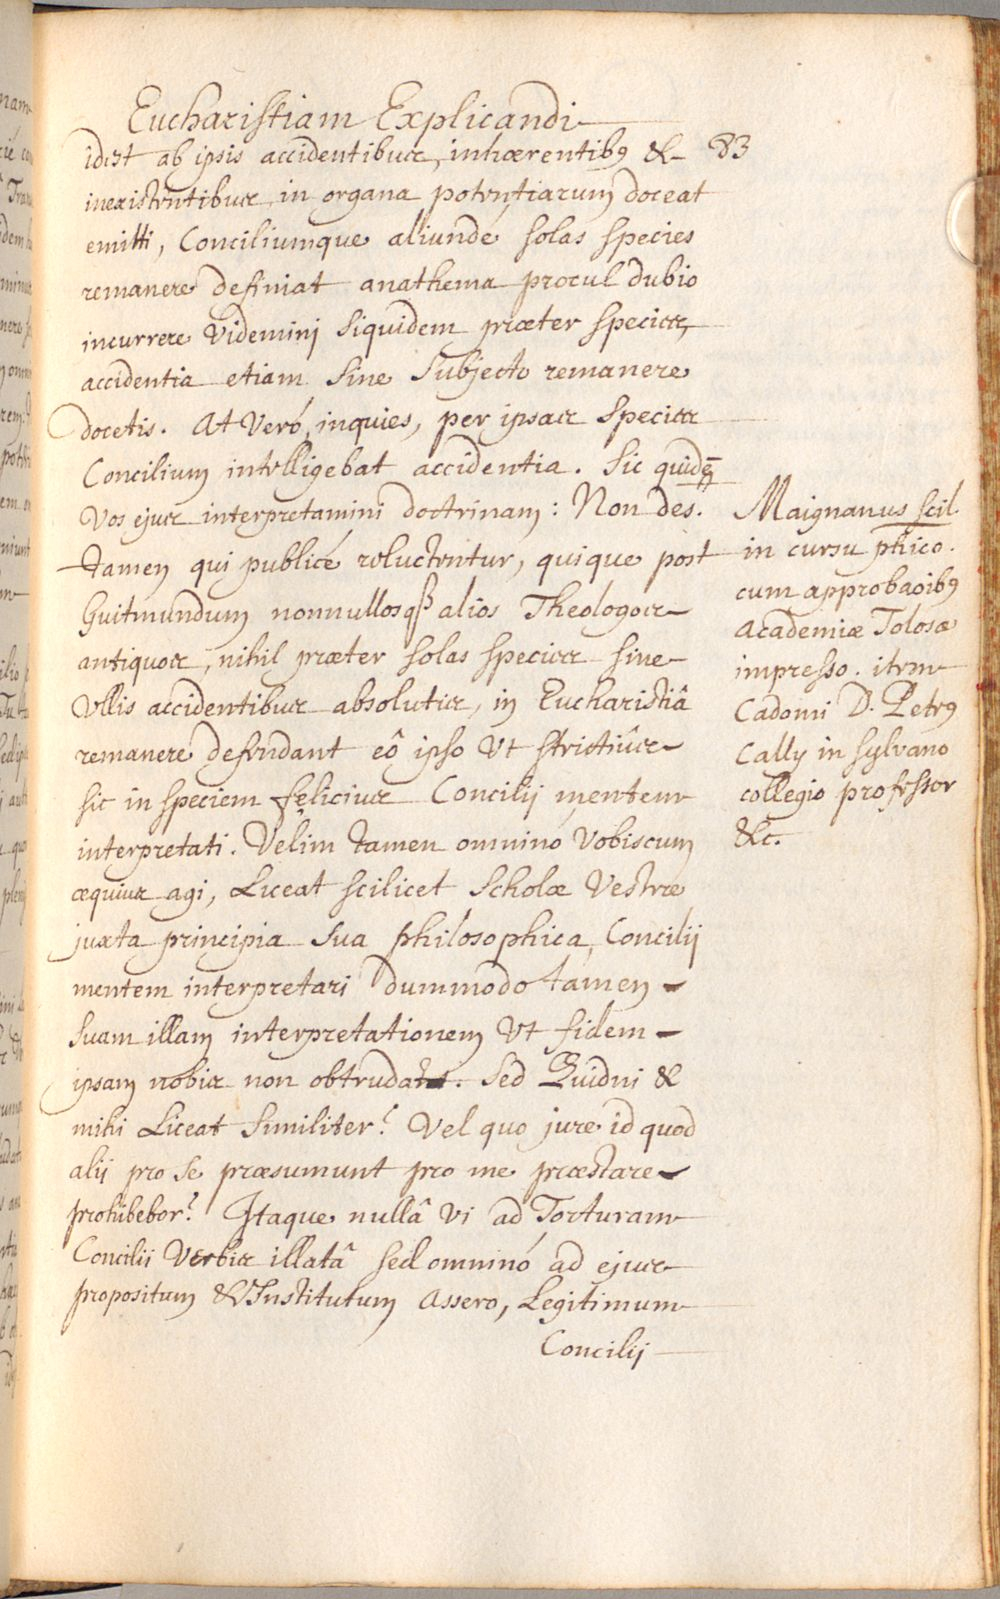 Eucharistiam Explicandi
idest ab ipsis accidentibus, inhærentibꝰ & 83
inexistentibus in organa potentiarum doceat
emitti, Conciliumque aliundé solas species
remanere definiat anathema procul dubio
incurrere Videmini siquidem præter species,
accidentia etiam sine Subjecto remanere
docetis. At Veró, inquies, per ipsas Species
Concilium intelligebat accidentia. Sic quidē
Vos ejus interpretamini doctrinam: Non des.
tamen qui publicé reluctentur, quique post
Guitmundum nonnullosqꝫ alios Theologos
antiquos, nihil præter solas species sine
Ullis accidentibus absolutis, in Eucharistiâ
remanere defendant eô ipso Ut strictiûs
sic in speciem felicius Concilij mentem
interpretati. Velim tamen omninó Vobiscum
æquius agi, Liceat scilicet Scholæ Vestræ
juxta principia sua philosophica, Concilij
mentem interpretari dummodo tamen
suam illam interpretationem Ut fidem
ipsam nobis non obtrudat. Sed Quidni &
mihi Liceat Similiter? Vel quo jure id quod
alij pro se præsumunt pro me præstare
prohibebor? Itaque nullâ Vi ad Torturam
Concilii Verbis illatâ sed omninó ad ejus
propositum & Institutum Assero, Legitimum
Concilij
Maignanus scil.
in cursu phico.
cum approbaoibꝰ
Academiæ Tolosæ
impresso. item
Cadomi D. Petrꝰ
Cally in sylvano
collegio professor
&c.